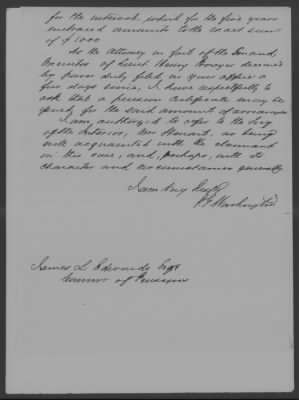 for the interval, which for the five years
embraced amounts to the exact sum
of $1000
As the Attorney in fact of the
Executor of Lieut Henry Bowyer deceased
by power duly filed, in your office a
few days since, I have respectfully to
ask that a pension certificate may be
issued, for the said amount of arrearages
I am, authorized to refer to the Secy
of the Interior, Mr Stewart, as being
well acquainted with the claimant
in this case, and, perhaps, with its
character and circumstances generally
I am Very Respy
P. G. Washington
James L Edwards Esqr
Commr of Pensions